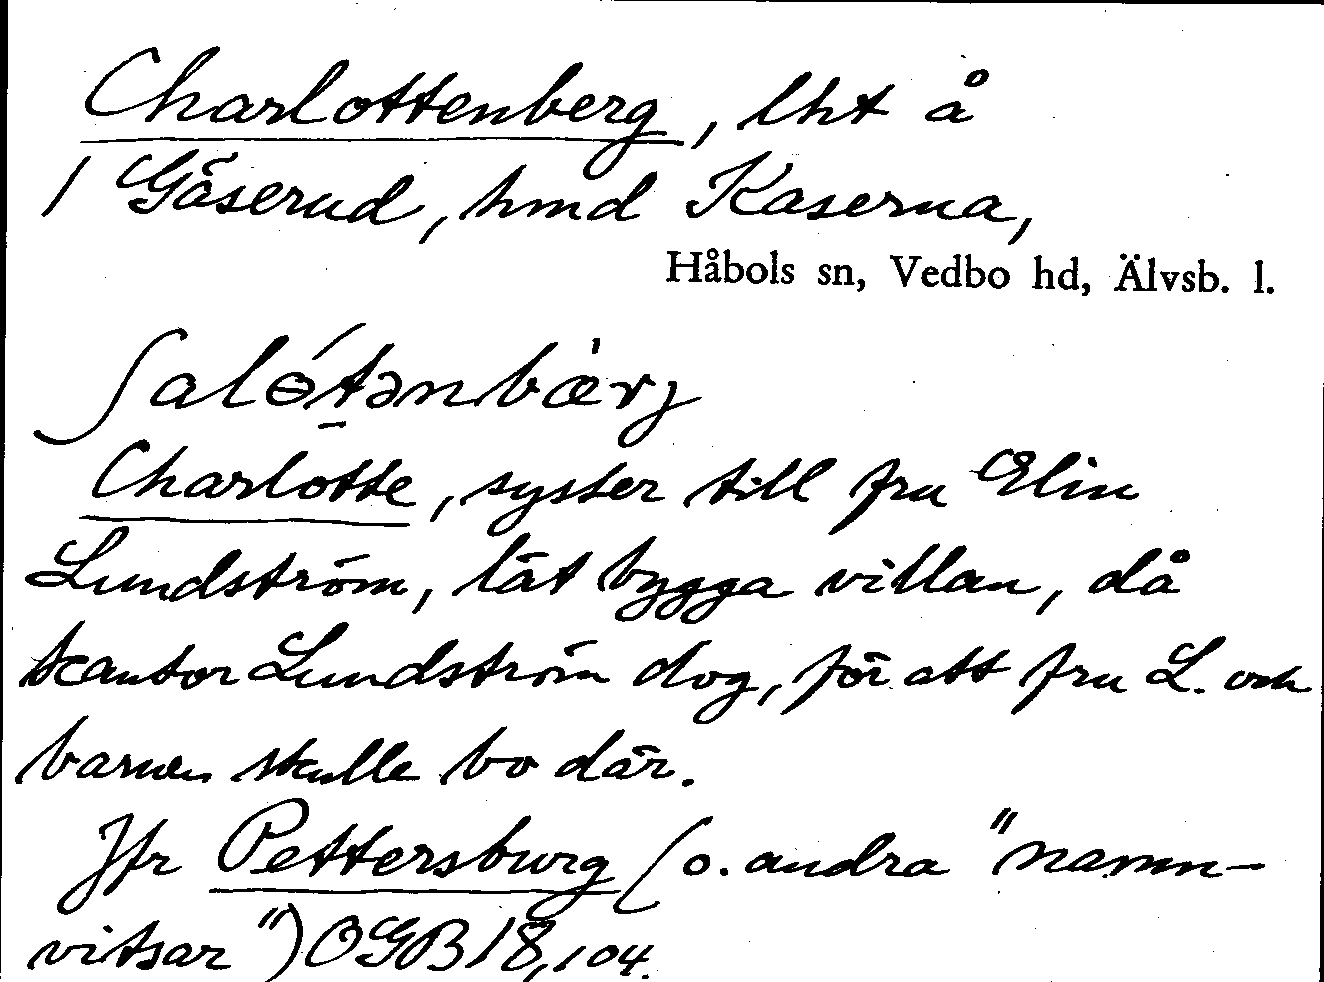 Charlottenberg, lht å
1 Gäserud, hmd Kaserna,
Håbols sn, Vedbo hd, Älvsb. l.
ʃalɵ́tənbær̀j
Charlotte, syster till fru Elin
Lundström, lät bygga villan, då
kantor Lundström dog, för att fru L. och
barnen skulle bo där.
Jfr Pettersburg (o. andra "namn-
vitsar") OGB 18, 104.